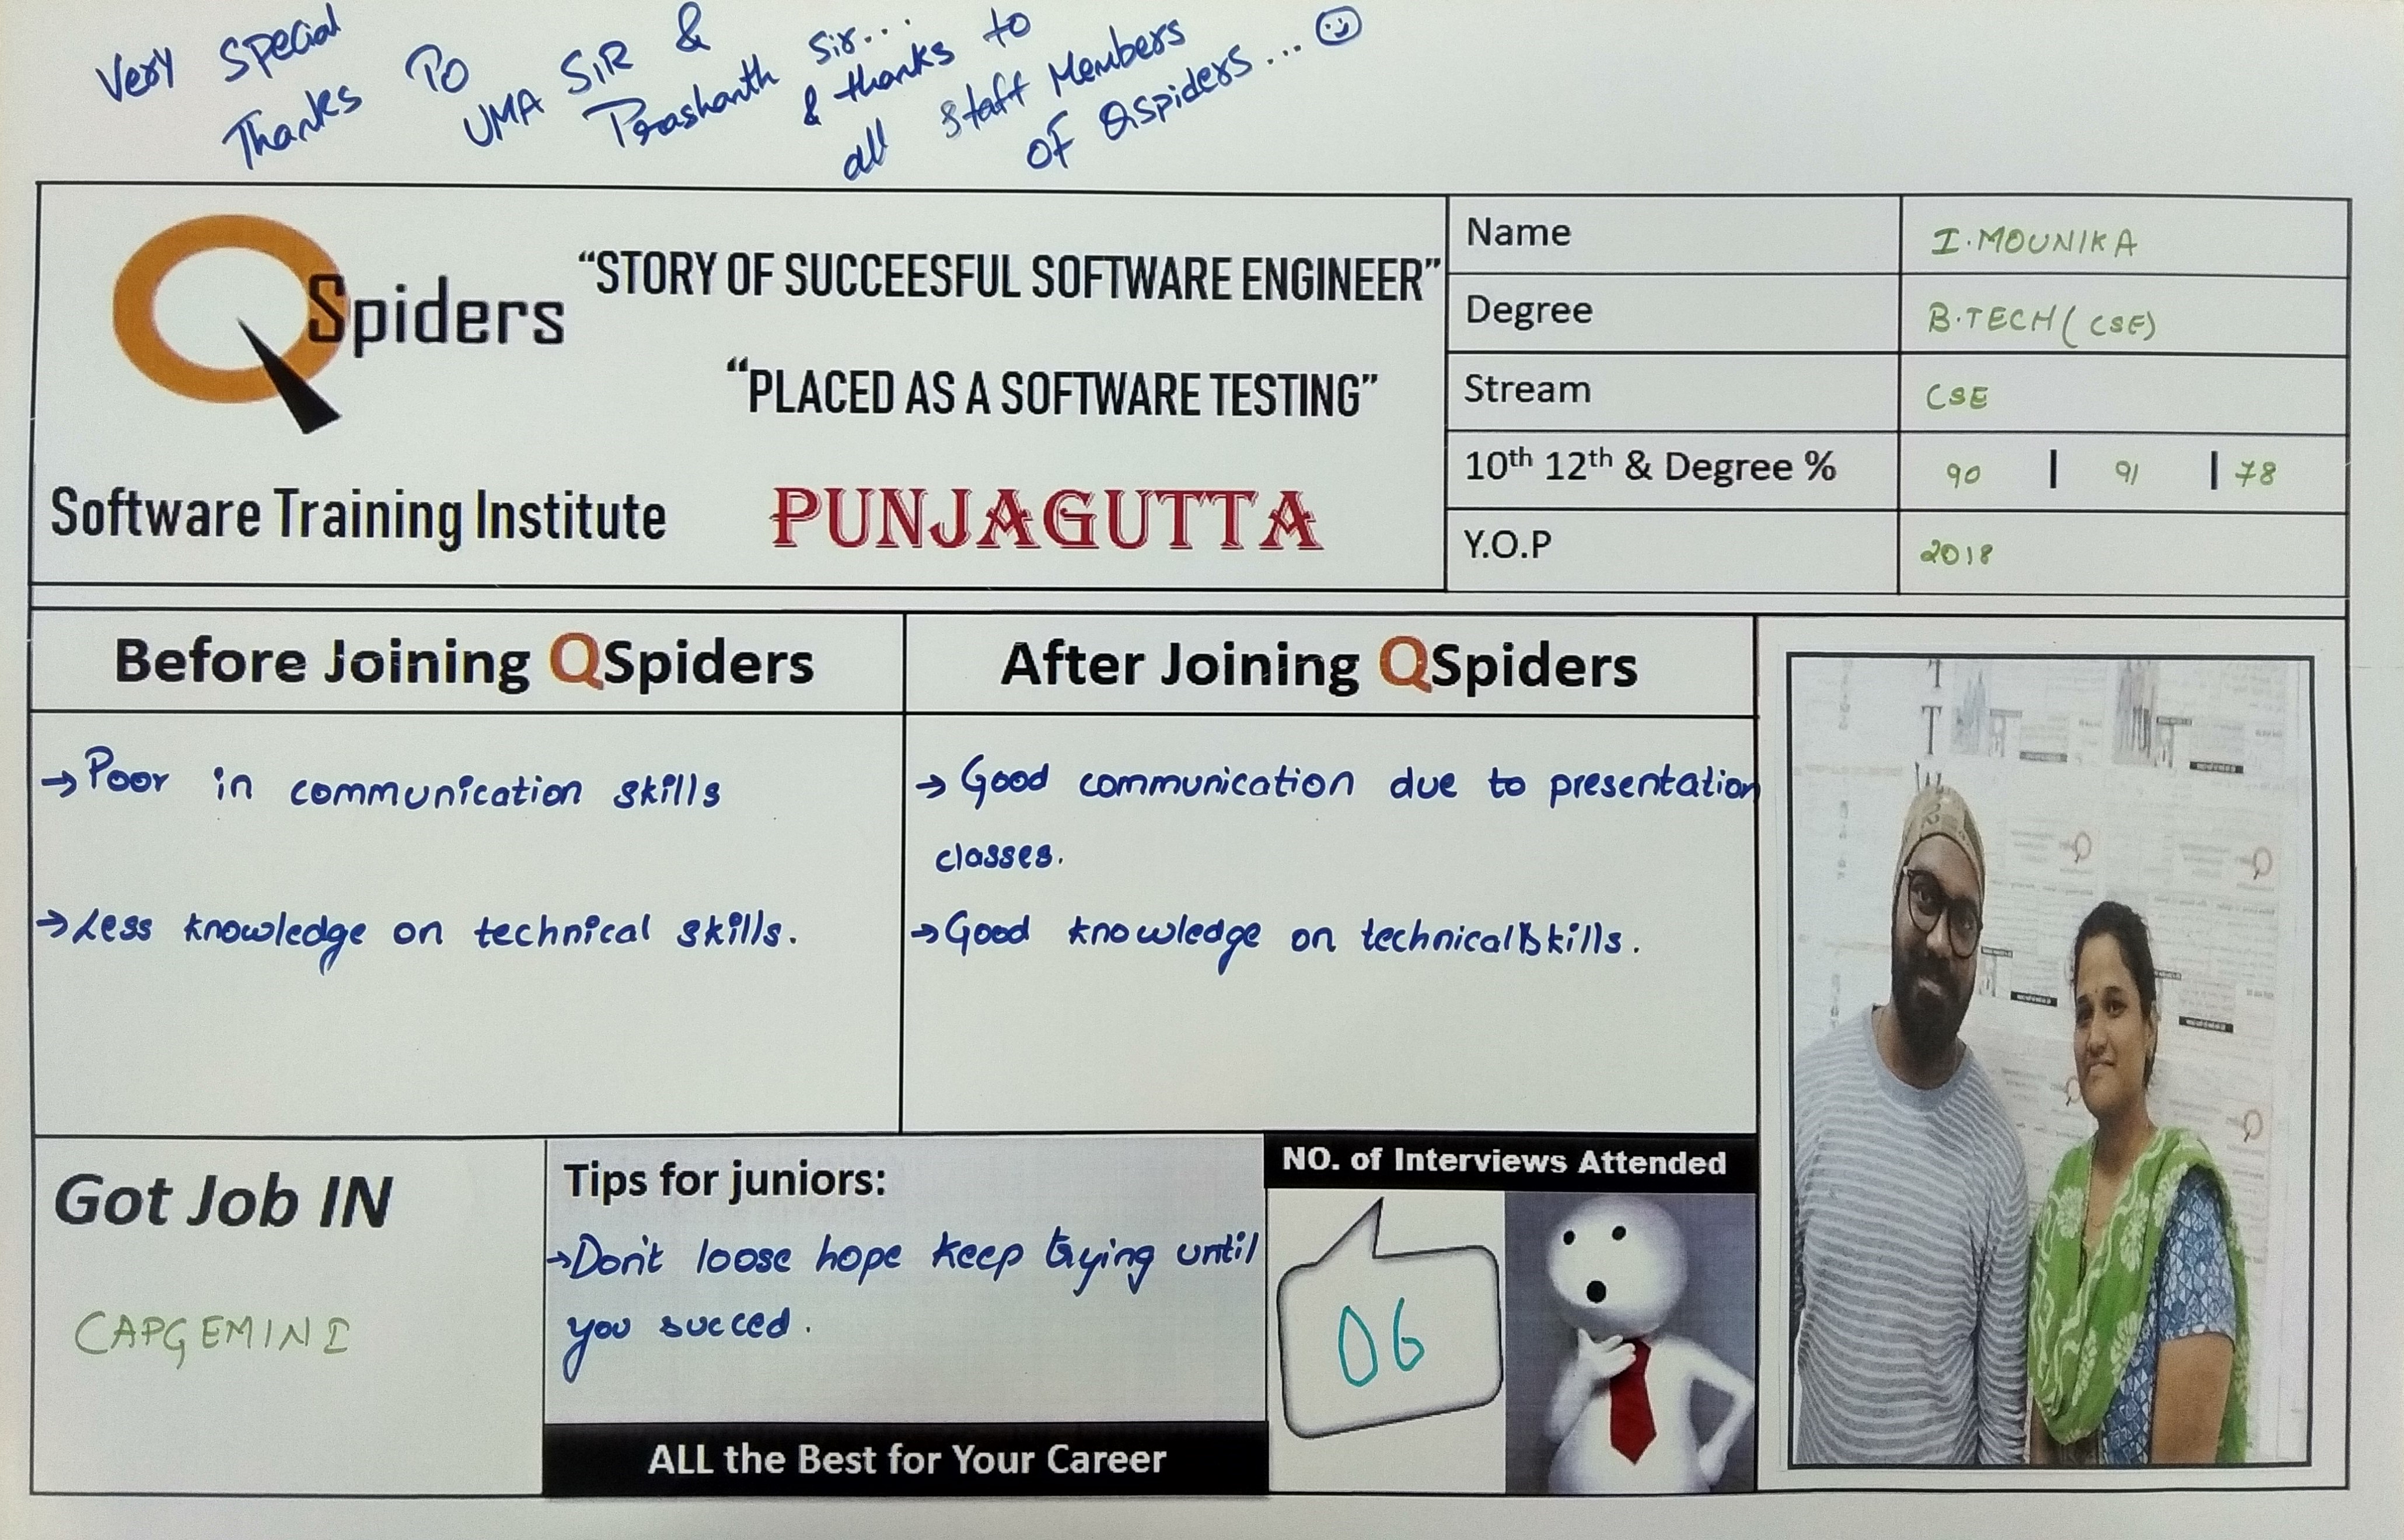 Very Special
Thanks To
UMA SIR &
Prashanth Sir...
& thanks to
all Staff Members
OF Qspiders....
QSpiders
Software Training Institute
“STORY OF SUCCEESFUL SOFTWARE ENGINEER”
“PLACED AS A SOFTWARE TESTING”
PUNJAGUTTA
Name I.MOUNIKA
Degree B.TECH(CSE)
Stream CSE
10th 12th & Degree % 90 | 91 | 78
Y.O.P 2018
Before Joining QSpiders
→Poor in communication skills
→Less knowledge on technical skills.
After Joining QSpiders
→ Good communication due to presentation
classes.
→Good knowledge on technical skills.
Got Job IN
CAPGEMINI
Tips for juniors:
→Don't loose hope keep trying until
you succed.
ALL the Best for Your Career
NO. of Interviews Attended
06